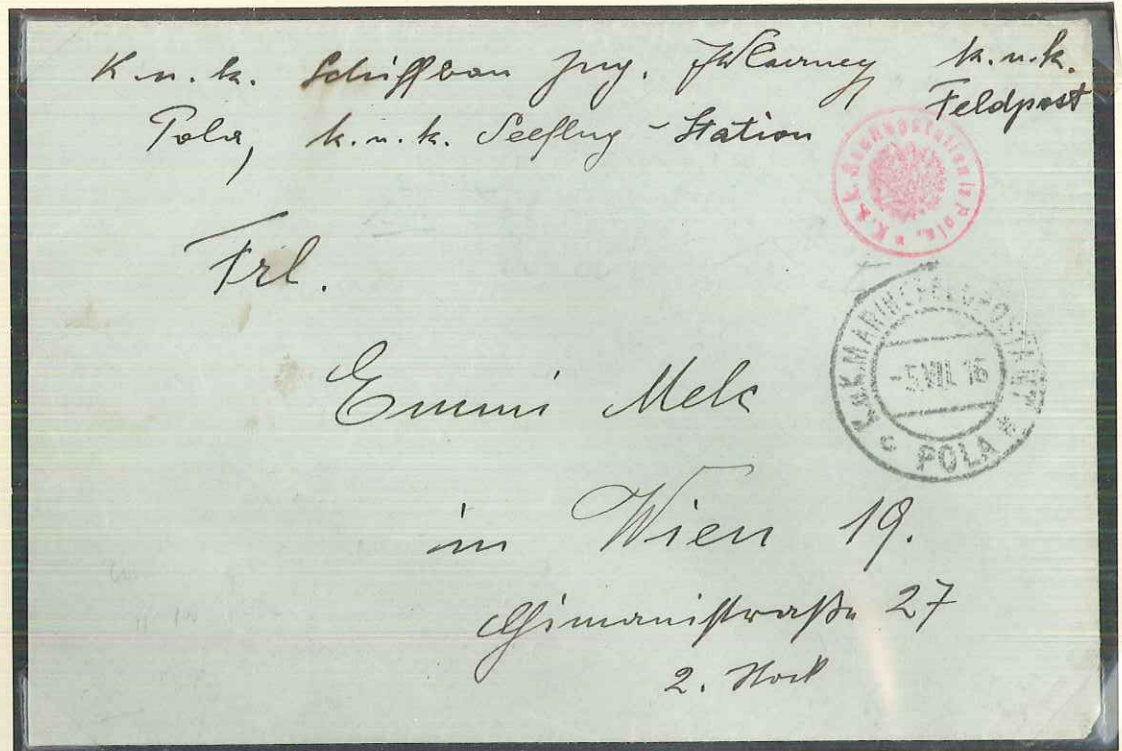 K. u. k. Schiffbau Ing. k. u. k.
Feldpost
Pola, k. u. k. Seeflug-Station
K. u. k. Seeflugstation in Pola.
Frl.
K.u.K. MARINEFELDPOSTAMT
-5.VII.16
POLA
Emmi Melk
in Wien 19.
Chimanistraße 27
2. Stock